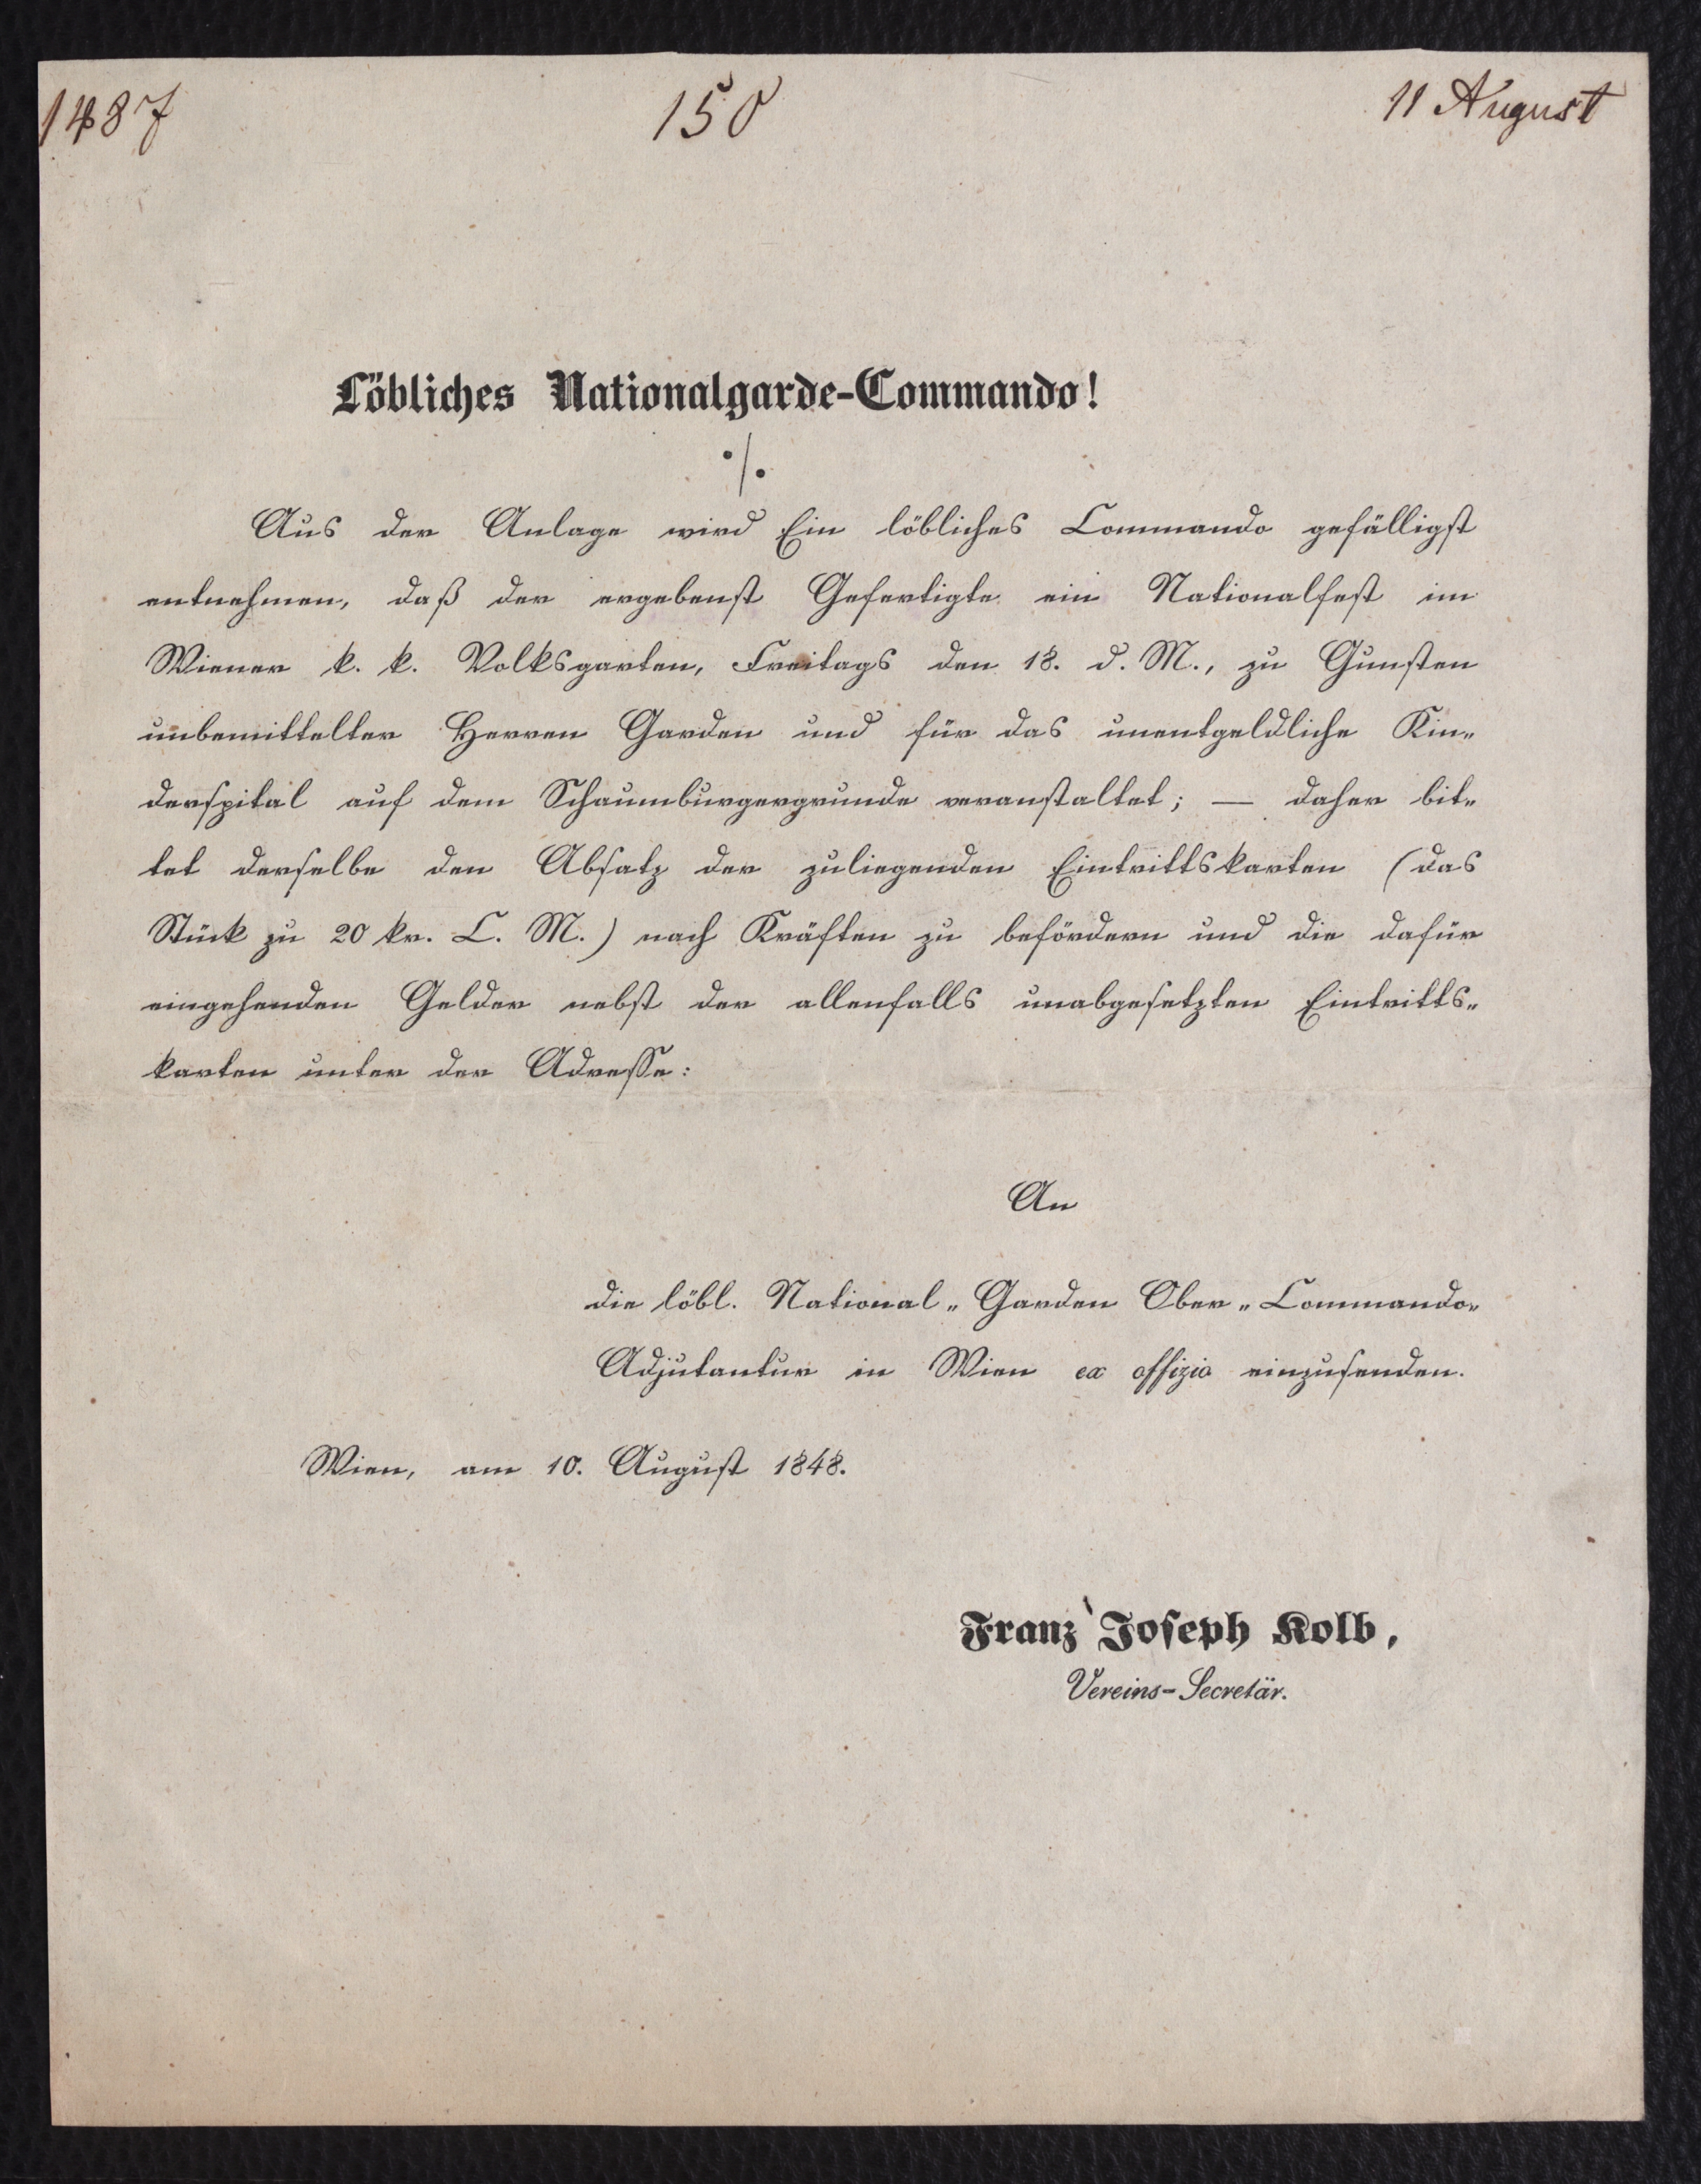 1487
150
11 August
Löbliches Nationalgarde-Commando!
·/.
Aus der Anlage wird Ein löbliches Commando gefälligst
entnehmen, daß der ergebenst Gefertigte ein Nationalfest im
Wiener k. k. Volksgarten, Freitags den 18. d. M., zu Gunsten
unbemittelter Herren Garden und für das unentgeldliche Kin„
derspital auf dem Schaumburgergrunde veranstaltet; — daher bit„
tet derselbe den Absatz der zuliegenden Eintrittskarten (das
Stück zu 20 kr. C. M.) nach Kräften zu befördern und die dafür
eingehenden Gelder nebst der allenfalls unabgesetzten Eintritts„
karten unter der Adresse:
An
die löbl. National„Garden Ober„Commando„
Adjutantur in Wien ex offizio einzusenden.
Wien, am 10. August 1848.
Franz Joseph Kolb,
Vereins-Secretär.